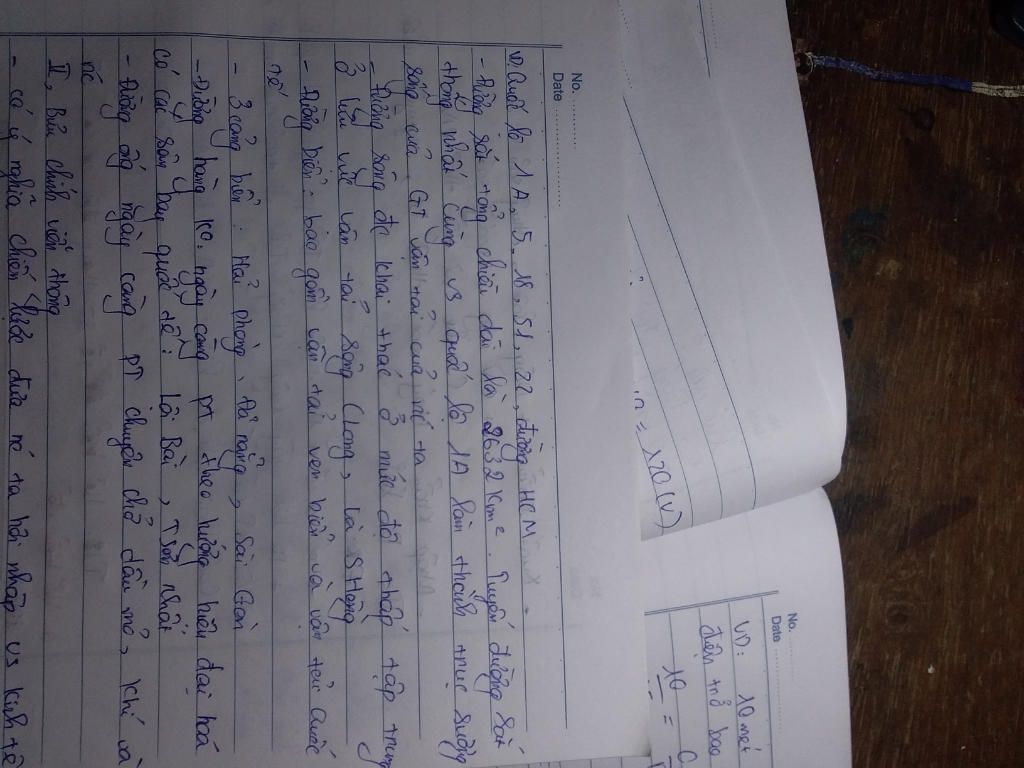 No. ............
Date ............
VD, Quốc lộ 1A, 5, 18, 51, 22, đường HCM
- Đường sắt tổng chiều dài là 2632 km². Tuyến đường sắt
thống nhất cùng vs quốc lộ 1A làm thành trục xương
sống của GT vận tải của nc ta
- Đường sông đc khai thác ở mức độ thấp tập trung
ở lưu vực vận tải sông C Long, là S Hồng
- Đường biển: bao gồm vận tải ven biển và vận tải Quốc
tế
- 3 cảng biển: Hải phòng, Đà nẵng, Sài Gòn
- Đường hàng ko: ngày càng PT theo hướng hiện đại hoá
có các sân bay quốc tế: Nội Bài, Tân nhất
- Đường ống ngày càng PT chuyên chở dầu mỏ, khí và
II, Bưu chính viễn thông
- có ý nghĩa chiến lược đưa nc ta hội nhập vs kinh tế
= 120 (V)
No. ............
Date ............
VD: 10 mét
điện trở
10 =